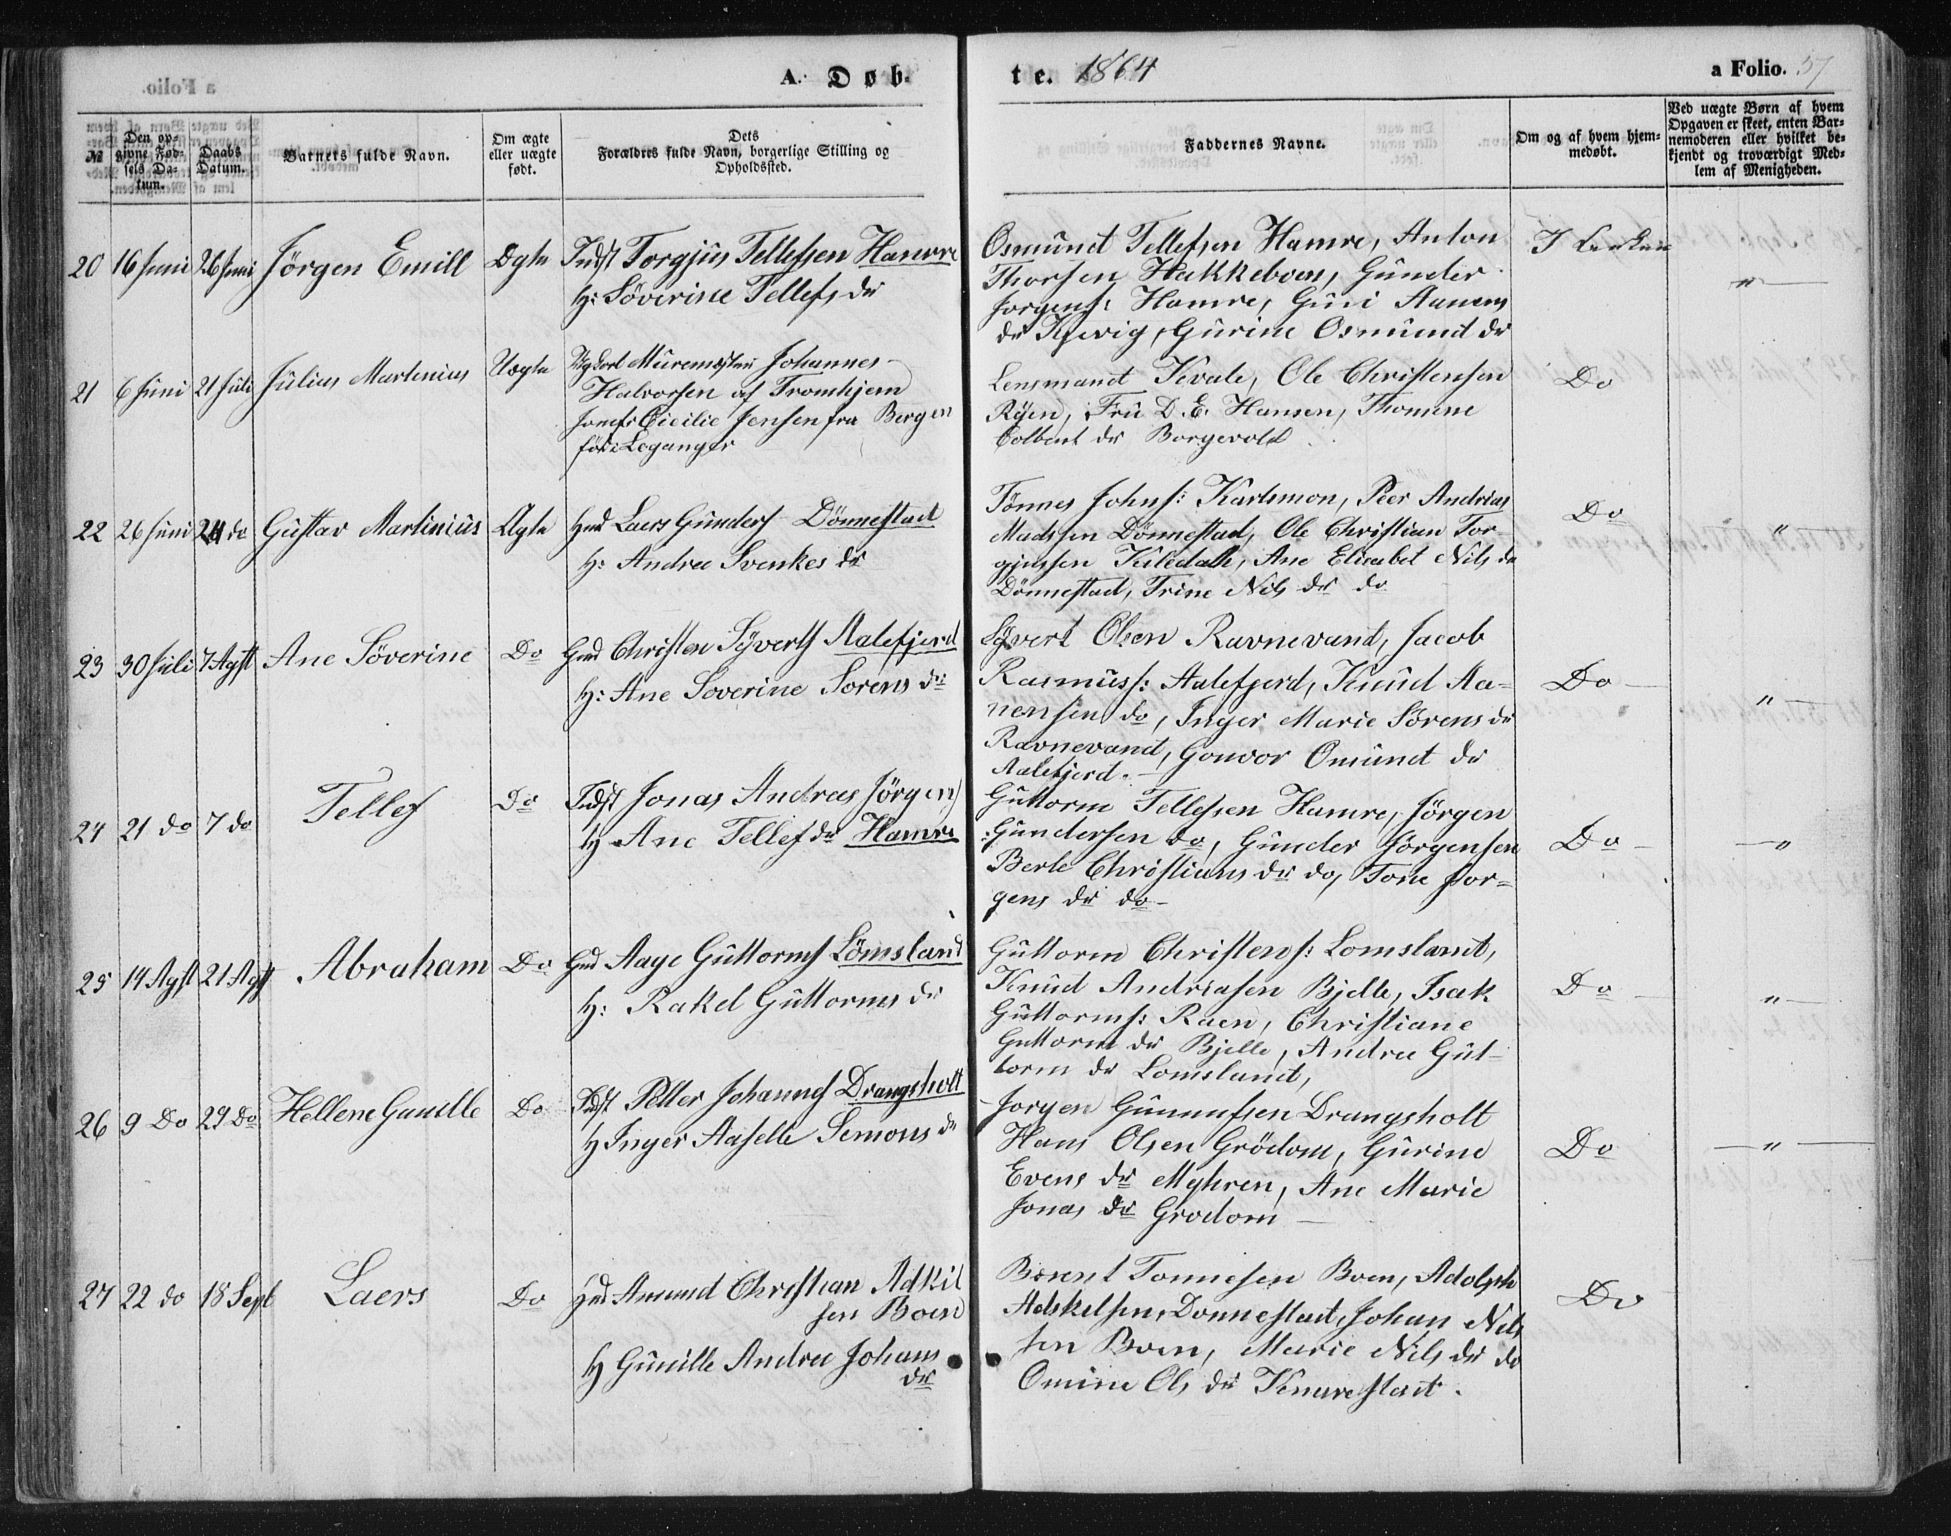 A. Døb-
te. 1864
a Folio. 57
№
Den op-
givne Fød-
sels Da-
tum.
Daabs
Datum.
Barnets fulde Navn.
Om ægte
eller uægte
født.
Dets
Forældres fulde Navn, borgerlige Stilling og
Opholdssted.
Faddernes Navne.
Om og af hvem hjem-
medøbt.
Ved uægte Børn af hvem
Opgaven er skeet, enten Bar-
nemoderen eller hvilket be-
kjendt og troværdigt Med-
lem af Menigheden.
20 16 Juni 26 Juni Jörgen Emill Ægte Indst Torgjus Tellefsen Hamre
H: Söverine Tellefs dr
Osmund Tellefsen Hamre, Anton
Thorsen Hakkeboen, Gunder
Jorgens: Hamre, Guri Aanens
dr, Gurine Osmund dr
I Kirken
"
21 6 Juni 21 Juli Julius Martinius Uægte Muremester Johannes
Halvorsen af Tromhjem
Cicilie Jensen fra Bergen
Leganger
Lensmand Kvale, Ole Christensen
Ryen, Fru D. E. Hansen, Thomine
Colbent dr Borgevold
Do
22 26 Juni 24 do Gustav Martinius Ægte Gmd Laers Gunders Dönnestad
H: Andrea Svenkes dr
Tönnes Johns: Karlsmon, Peer Andrias
Madssen Dönnestad, Ole Christian Tor-
gjussen Kiledals, Ane Elisabet Nils dr
Dönnestad, Trine Nils dr do
Do
"
23 30 Juli 7 Agst Ane Söverine Do Gmd Christen Syverts Aalefjerd
H: Ane Soverine Sorens dr
Syvert Olsen Ravnevand, Jacob
Rasmuss: Aalefjerd, Knud Aa-
nensen do, Inger Marie Sörens dr
Ravnevand, Gonvor Omund dr
Aalefjerd.
Do
"
24 21 do 7 do Tellef Do Indst Jonas Andreas Jörgens
H Ane Tellef dr Hamre
Guttorm Tellefsen Hamre, Jörgen
Gundersen do, Gunder Jorgensen
Berte Christians dr do, Tone Jor-
gens dr do
Do
"
25 14 Agst 21 Agst Abraham Do Gmd Aage Guttorms Lömsland
H: Rakel Guttorms dr
Guttorm Christens: Lomsland,
Knud Andriasen Bjelle, Isak
Guttorms: Raen, Christiane
Guttorm dr Bjelle, Andrea Gut-
torm dr Lomsland,
Do
"
26 9 Do 29 Do Hellene Gunille Do Indst Petter Johannes Drangsholt
H Inger Aaselle Semons dr
Jorgen Gunnufsen Drangsholt
Hans Olsen Grödom, Gurine
Evens dr Myhren, Ane Marie
Jonas dr Grodom
Do
"
27 22 do 18 Sept Laers Do Gmd Amund Christian Adkil
sen Boen
H Gunille Andrea Johans
dr
Berent Tonnesen Boen, Adolph
Adskelsen, Donnestad, Johan Nils
sen Boen, Marie Nils dr do
Omine Ols dr Knarestad.
Do